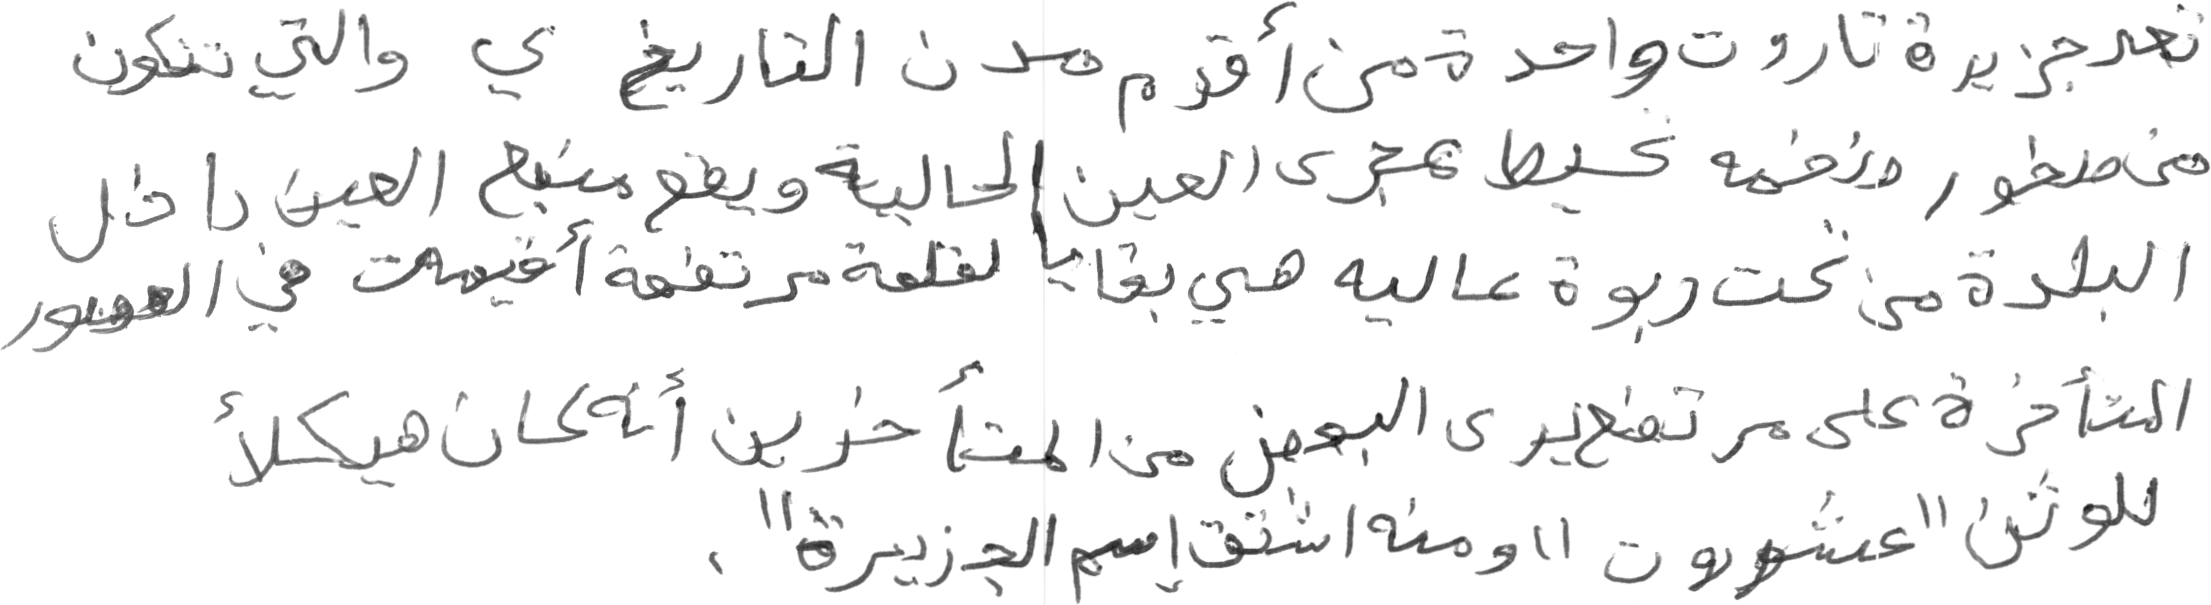 تعد جزيرة تاروت واحدة من أقدم مدن التاريخ ي والتي تتكون
من صخور ضخمه تحيط بمجرى العين الحالية ويقع منبع العين داخل
البلدة من تحت ربوة عاليه هي بقايا لقلعة مرتفعة أقيمت في العصور
المتأخرة على مرتفع يرى البعض من المتأخرين أنه كان هيكلأ
للوثن "عشتروت" ومنه اشتق إسم الجزيرة".